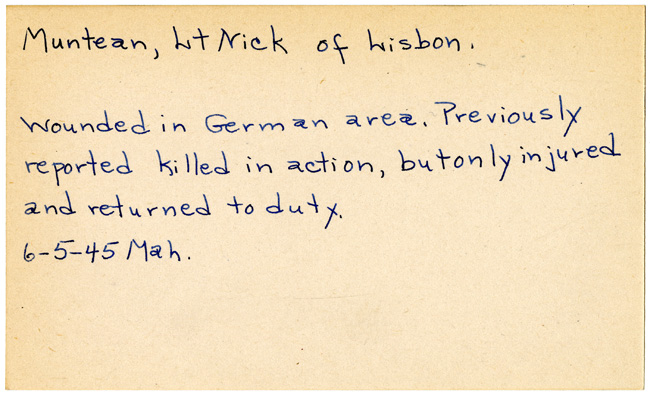 Muntean, Lt Nick of Lisbon.
Wounded in German area. Previously
reported killed in action, but only injured
and returned to duty.
6-5-45 Mah.